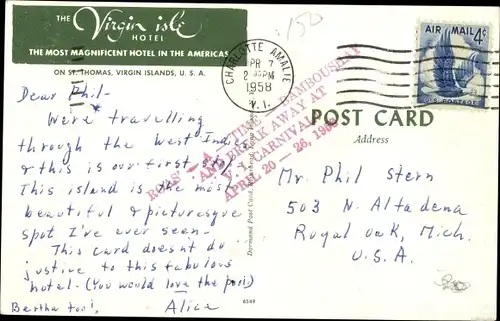 THE
Virgin isle
HOTEL
THE MOST MAGNIFICENT HOTEL IN THE AMERICAS
ON ST. THOMAS, VIRGIN ISLANDS, U. S. A.
Dear Phil-
We're travelling
through the West Indies
& this is our first stop.
This island is the most
beautiful & picturesque
spot I've ever seen-
This card doesn't do
justice to this fabulous
hotel. (You would love the pool)
Bertha too!, Alice
150
CHARLOTTE AMALIE
APR 7
2 PM
1958
V. I.
AIR MAIL 4¢
U.S. POSTAGE
BAMBOUSHAY
AND BREAK AWAY AT
V. I. CARNIVAL
APRIL 20 - 26, 1958
POST CARD
Address
Mr. Phil Stern
503 N. Altadena
Royal Oak, Mich.
U.S.A.
6549